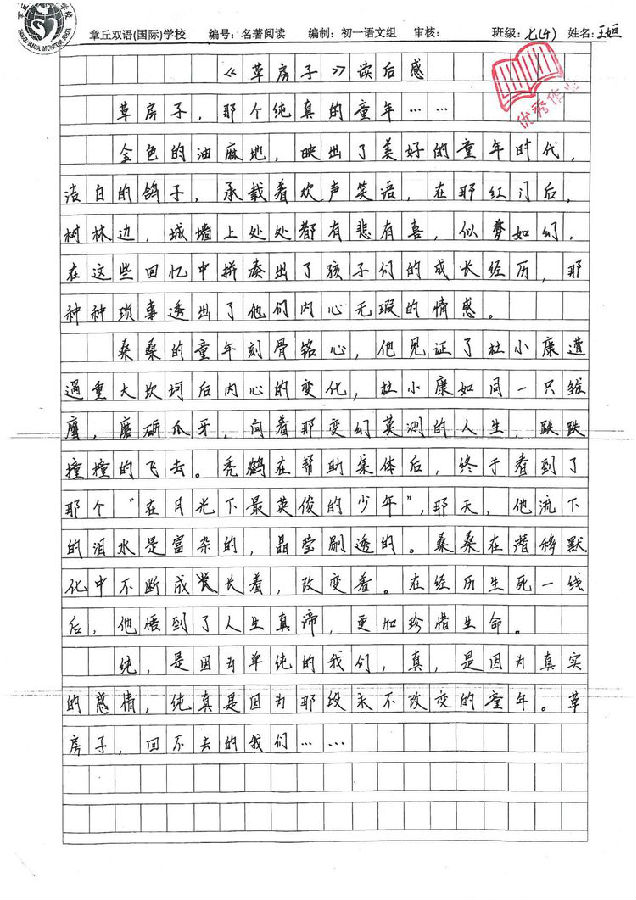 章丘双语(国际)学校 编号：名著阅读 编制：初一语文组 审核： 班级：七(4) 姓名：王姮
《草房子》读后感
优秀作业
草房子，那个纯真的童年……
金色的油麻地，映出了美好的童年时代，
洁白的鸽子，承载着欢声笑语，在那红门后，
树林边，城墙上处处都有悲有喜，似梦如幻，
在这些回忆中拼凑出了孩子们的成长经历，那
种种琐事透出了他们内心无瑕的情感。
桑桑的童年刻骨铭心，他见证了杜小康遭
遇重大坎坷后内心的变化，杜小康如同一只雏
鹰，磨砺爪牙，向着那变幻莫测的人生，跌跌
撞撞的飞去。秃鹤在帮助集体后，终于看到了
那个“在月光下最英俊的少年”，那天，他流下
的泪水是富杂的，晶莹剔透的。桑桑在潜移默
化中不断成长着，改变着。在经历生死一线
后，他悟到了人生真谛，更加珍惜生命。
纯，是因为单纯的我们，真，是因为真实
的感情，纯真是因为那段永不改变的童年。草
房子，回不去的我们……